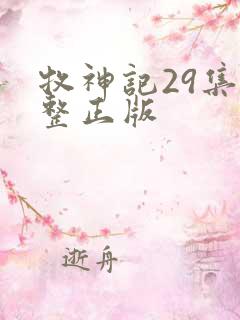 牧神記29集
整正版
逝舟